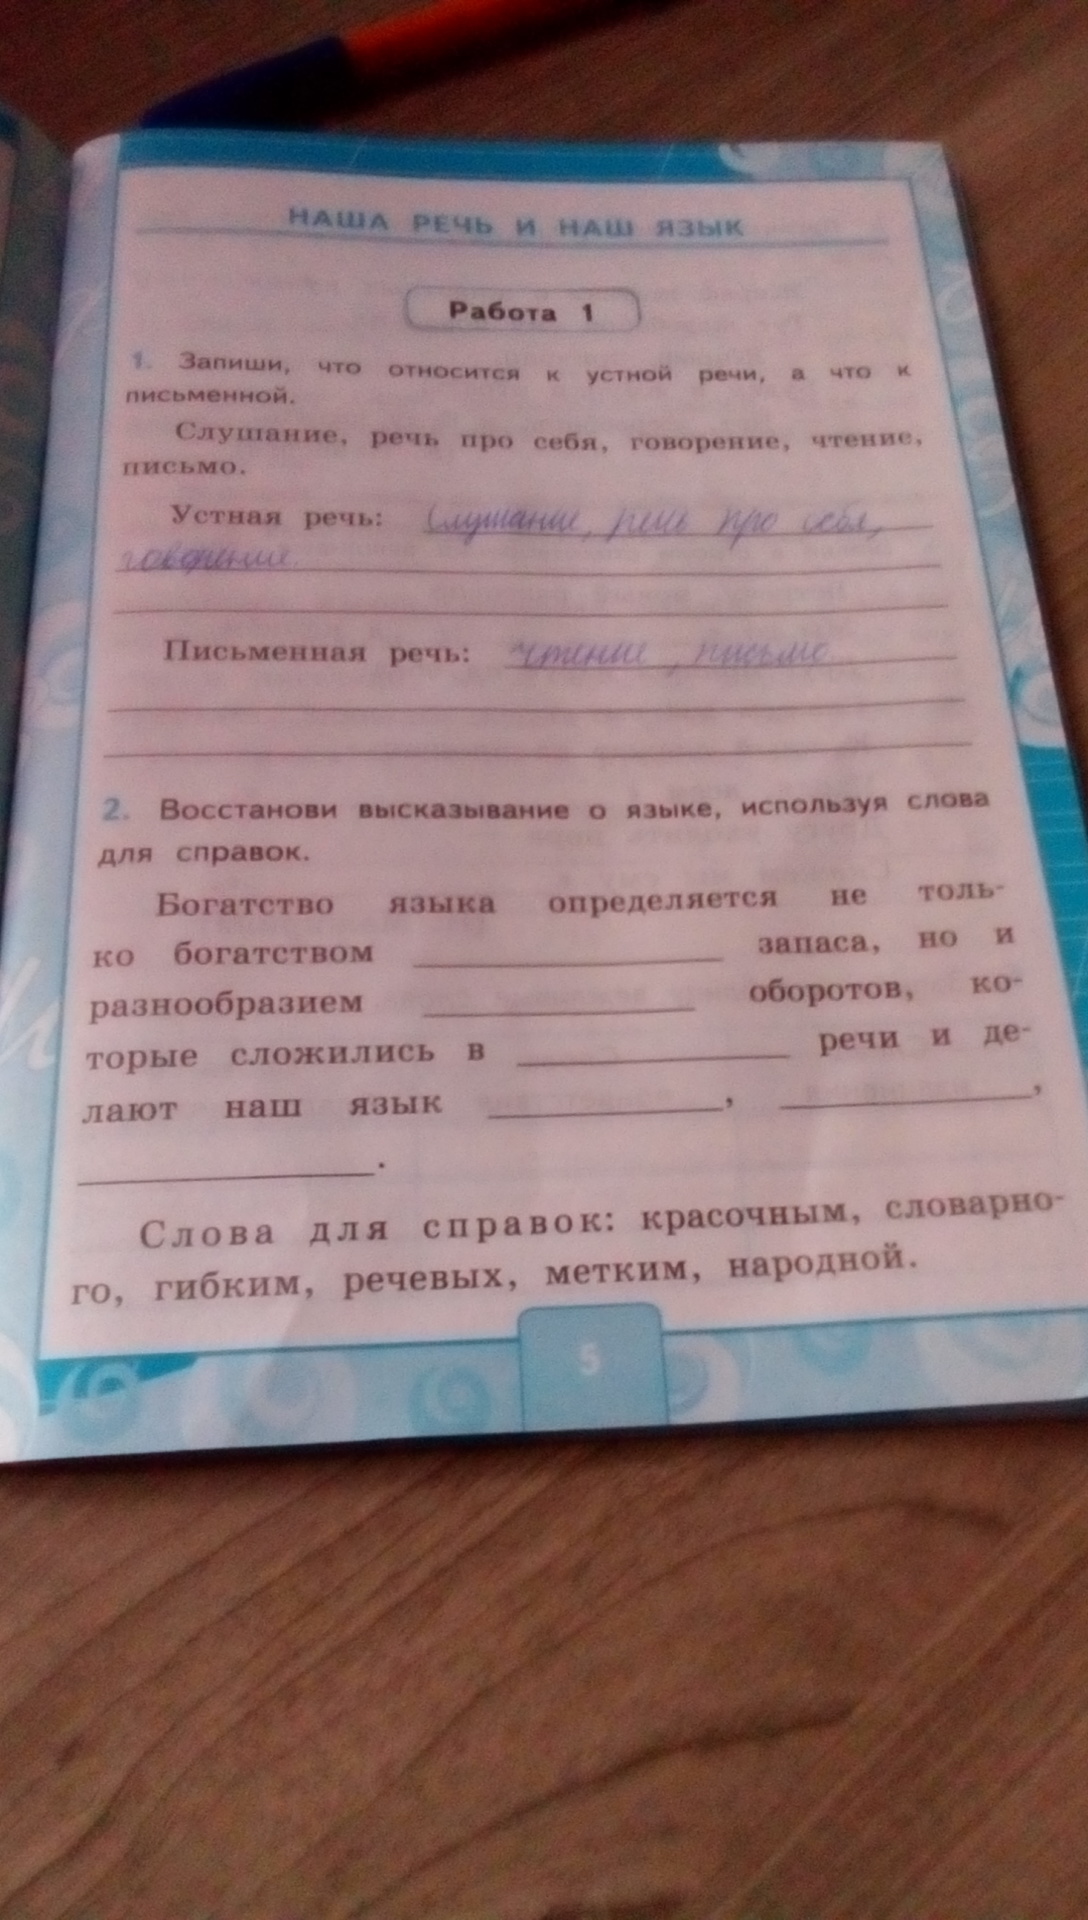 НАША РЕЧЬ И НАШ ЯЗЫК
Работа 1
1. Запиши, что относится к устной речи, а что к
письменной.
Слушание, речь про себя, говорение, чтение,
письмо.
Устная речь: Слушание, речь про себя,
говорение.
Письменная речь: чтение, письмо
2. Восстанови высказывание о языке, используя слова
для справок.
Богатство языка определяется не толь-
ко богатством ____ запаса, но и
разнообразием ____ оборотов, ко-
торые сложились в ____ речи и де-
лают наш язык ____, ____,
____.
Слова для справок: красочным, словарно-
го, гибким, речевых, метким, народной.
5